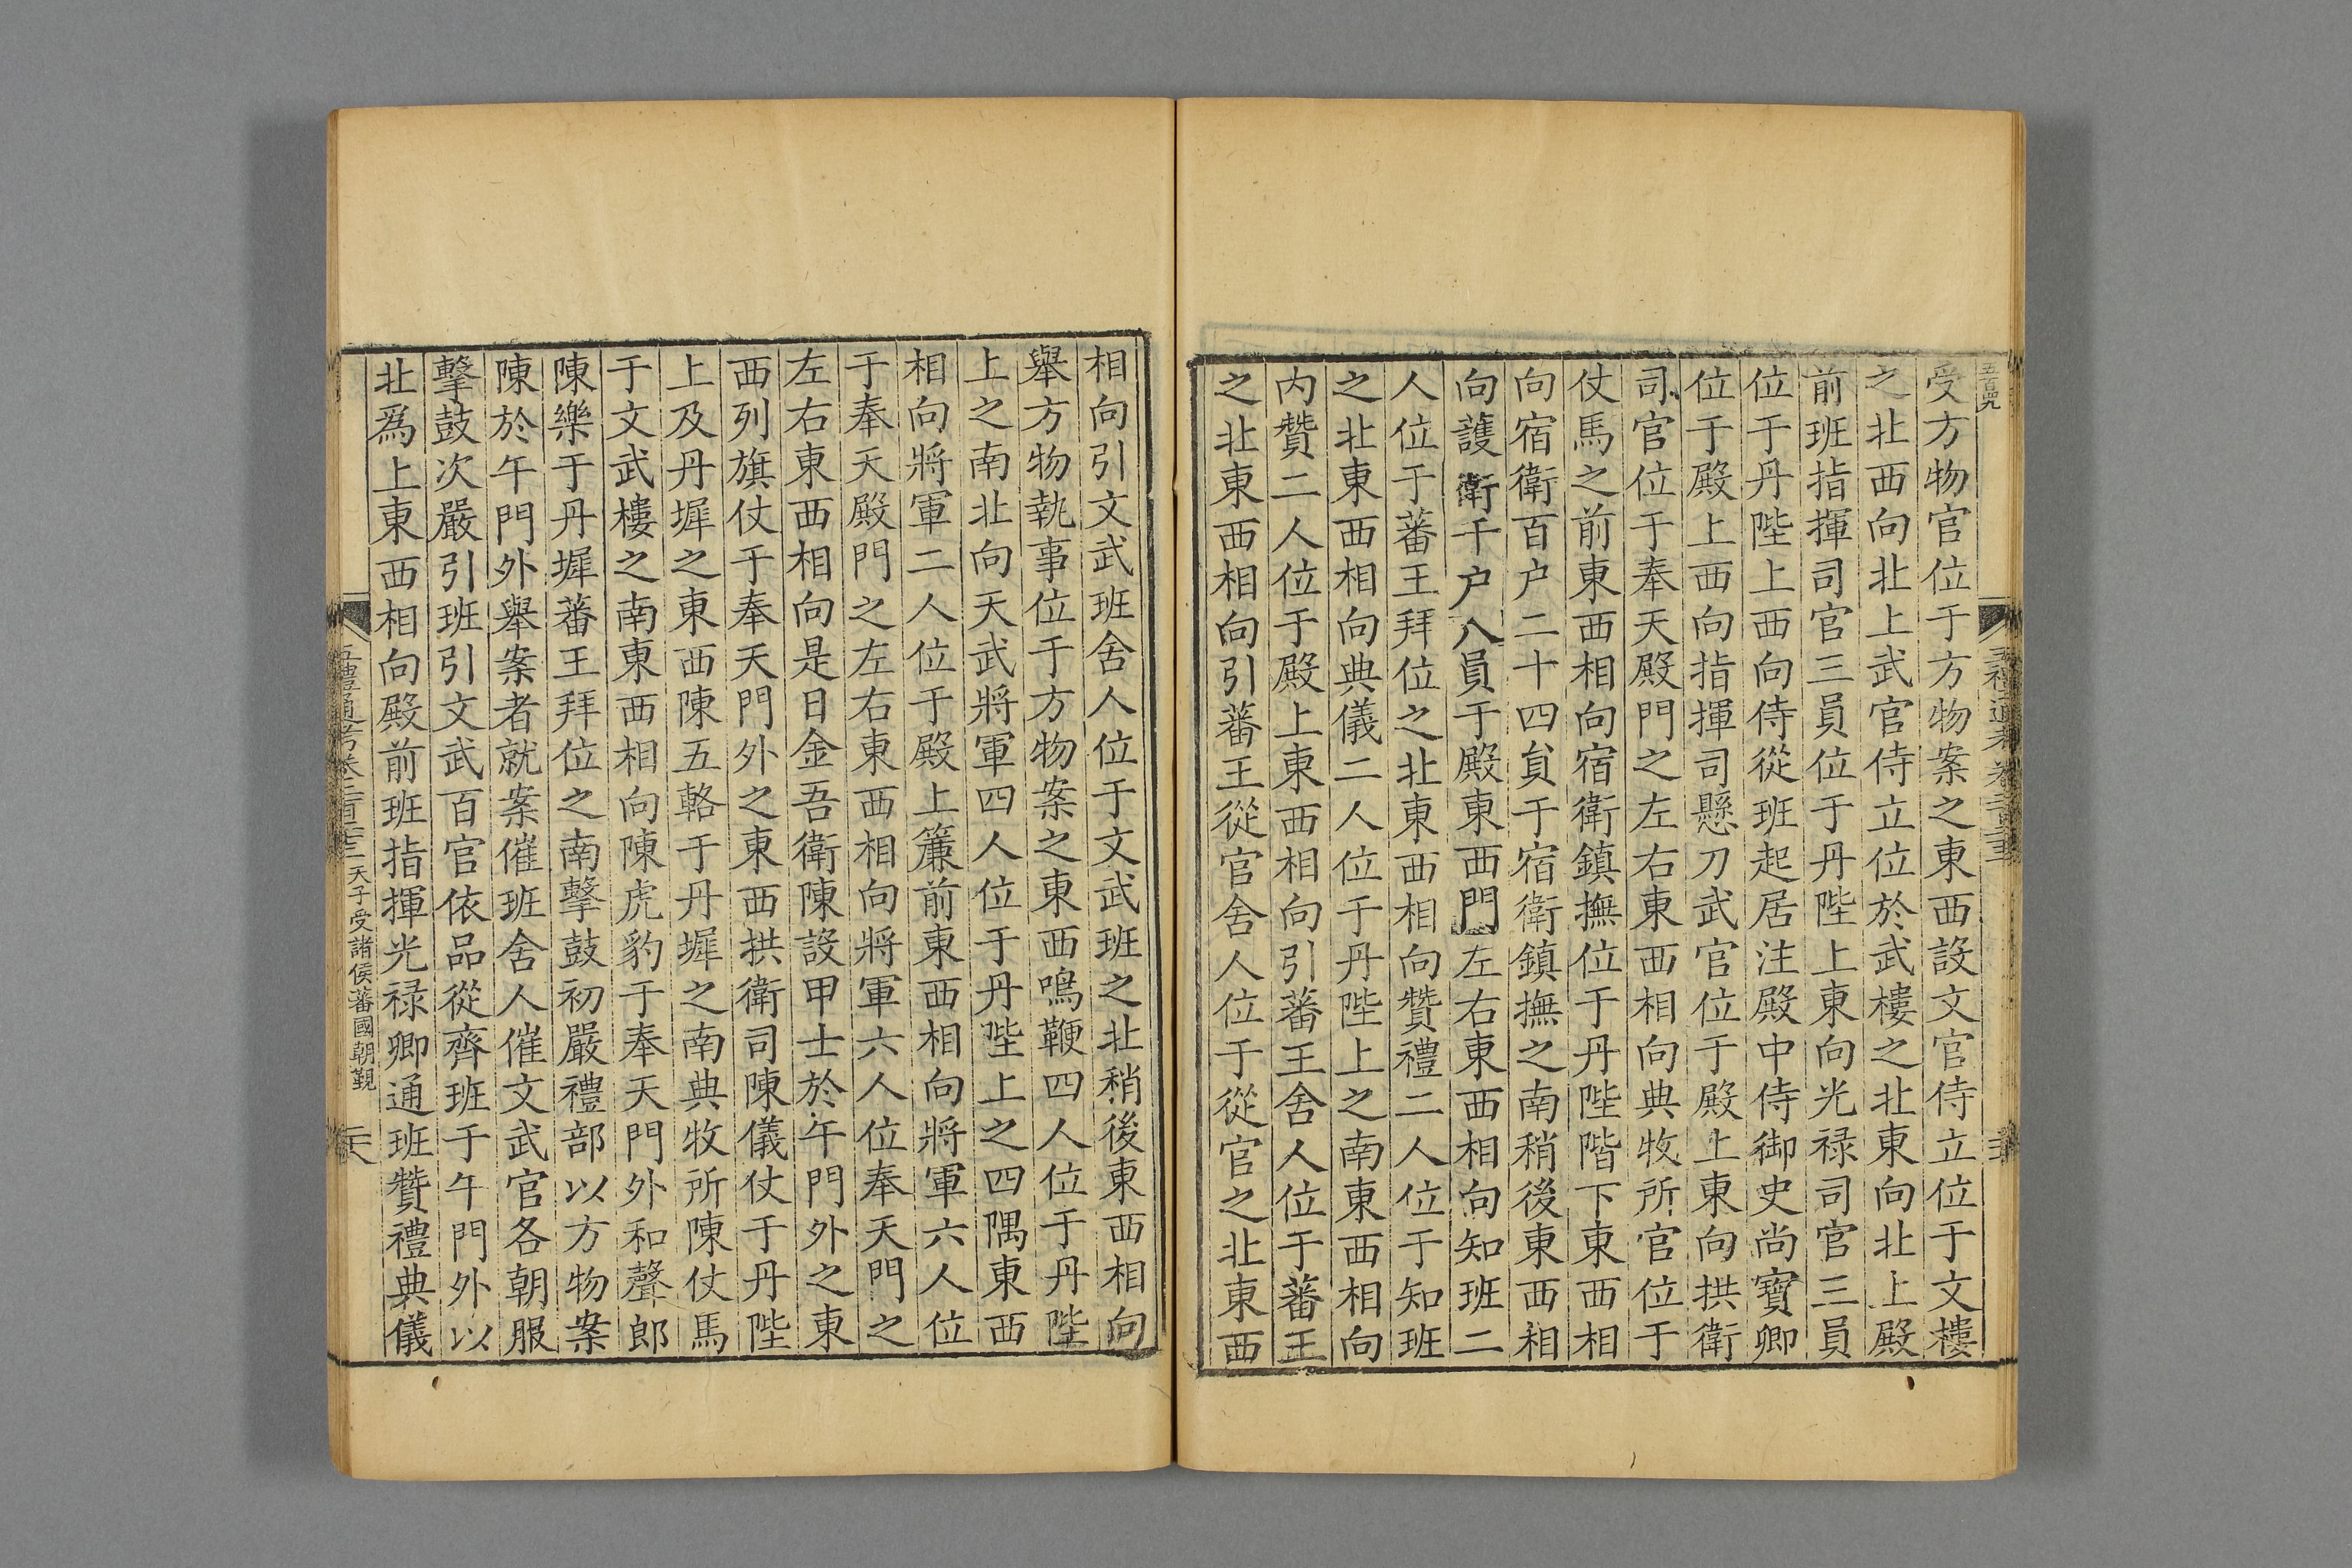 受方物官位于方物案之東西設文官侍立位于文樓
之北西向北上武官侍立位於武樓之北東向北上殿
前班指揮司官三員位于丹陛上東向光禄司官三員
位于丹陛上西向侍從班起居注殿中侍御史尚寶卿
位于殿上西向指揮司懸刀武官位于殿上東向拱衛
司官位于奉天殿門之左右東西相向典牧所官位于
仗馬之前東西相向宿衛鎮撫位于丹陛階下東西相
向宿衛百户二十四貟于宿衛鎮撫之南稍後東西相
向護衛千户八員于殿東西門左右東西相向知班二
人位于蕃王拜位之北東西相向贊禮二人位于知班
之北東西相向典儀二人位于丹陛上之南東西相向
内贊二人位于殿上東西相向引蕃王舍人位于蕃王
之北東西相向引蕃王從官舍人位于從官之北東西
相向引文武班舍人位于文武班之北稍後東西相向
舉方物執事位于方物案之東西鳴鞭四人位于丹陛
上之南北向天武將軍四人位于丹陛上之四隅東西
相向將軍二人位于殿上簾前東西相向將軍六人位
于奉天殿門之左右東西相向將軍六人位奉天門之
左右東西相向是日金吾衛陳設甲士於午門外之東
西列旗仗于奉天門外之東西拱衛司陳儀仗于丹陛
上及丹墀之東西陳五輅于丹墀之南典牧所陳仗馬
于文武樓之南東西相向陳虎豹于奉天門外和聲郎
陳樂于丹墀蕃王拜位之南擊鼓初嚴禮部以方物案
陳於午門外舉案者就案催班舍人催文武官各朝服
擊鼓次嚴引班引文武百官依品從齊班于午門外以
北爲上東西相向殿前班指揮光禄卿通班贊禮典儀
天子受諸侯蕃國朝覲